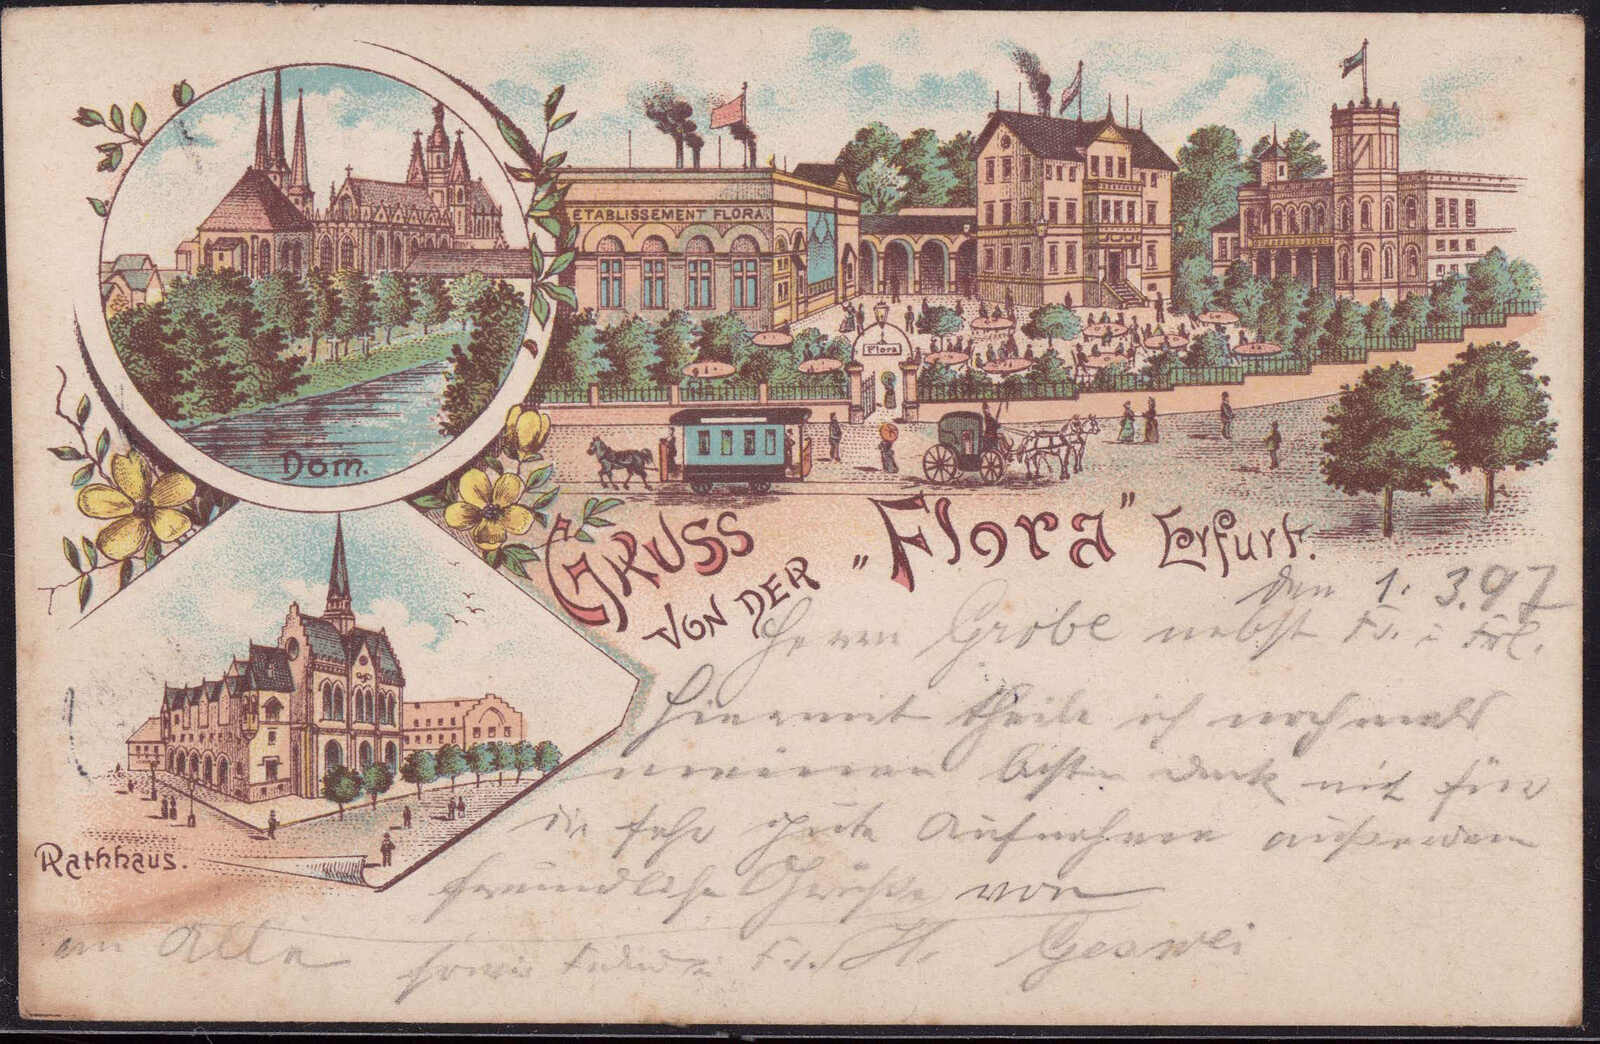 Dom.
ETABLISSEMENT FLORA.
Flora
GRUSS
VON DER „Flora" Erfurt.
Rathhaus.
den 1. 3. 97
Herrn Grobe nebst Fr. i Frl.
Hiermit theile ich nochmals
meinen besten Dank mit für
die sehr gute Aufnahme außerdem
freundliche Grüße von
an Alle sowie Fr. H.